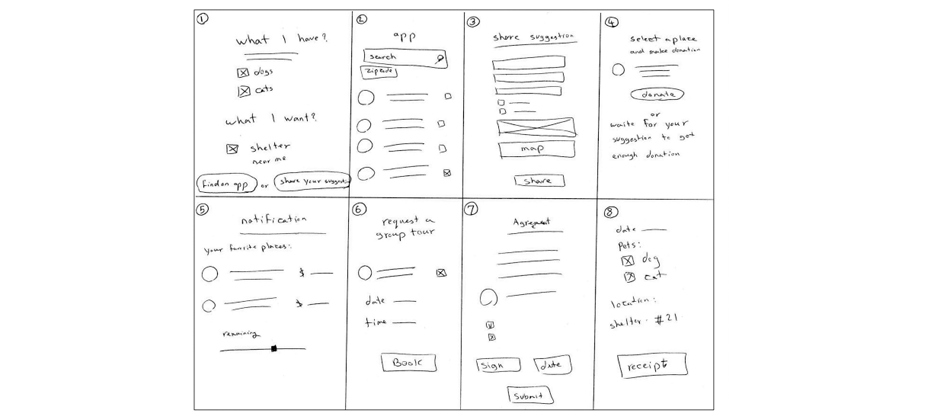 1
what I have?
dogs
cats
what I want?
shelter
near me
find on app or share your suggestion
2
app
search
zipcode
3
share suggestion
map
share
4
select a place
and make donation
donate
or
waite for your
suggestion to get
enough donation
5
notification
your favrite places:
$
$
remaining
6
request a
group tour
date
time
Book
7
Agreement
sign date
submit
8
date
pets:
dog
cat
location:
shelter - #21
receipt